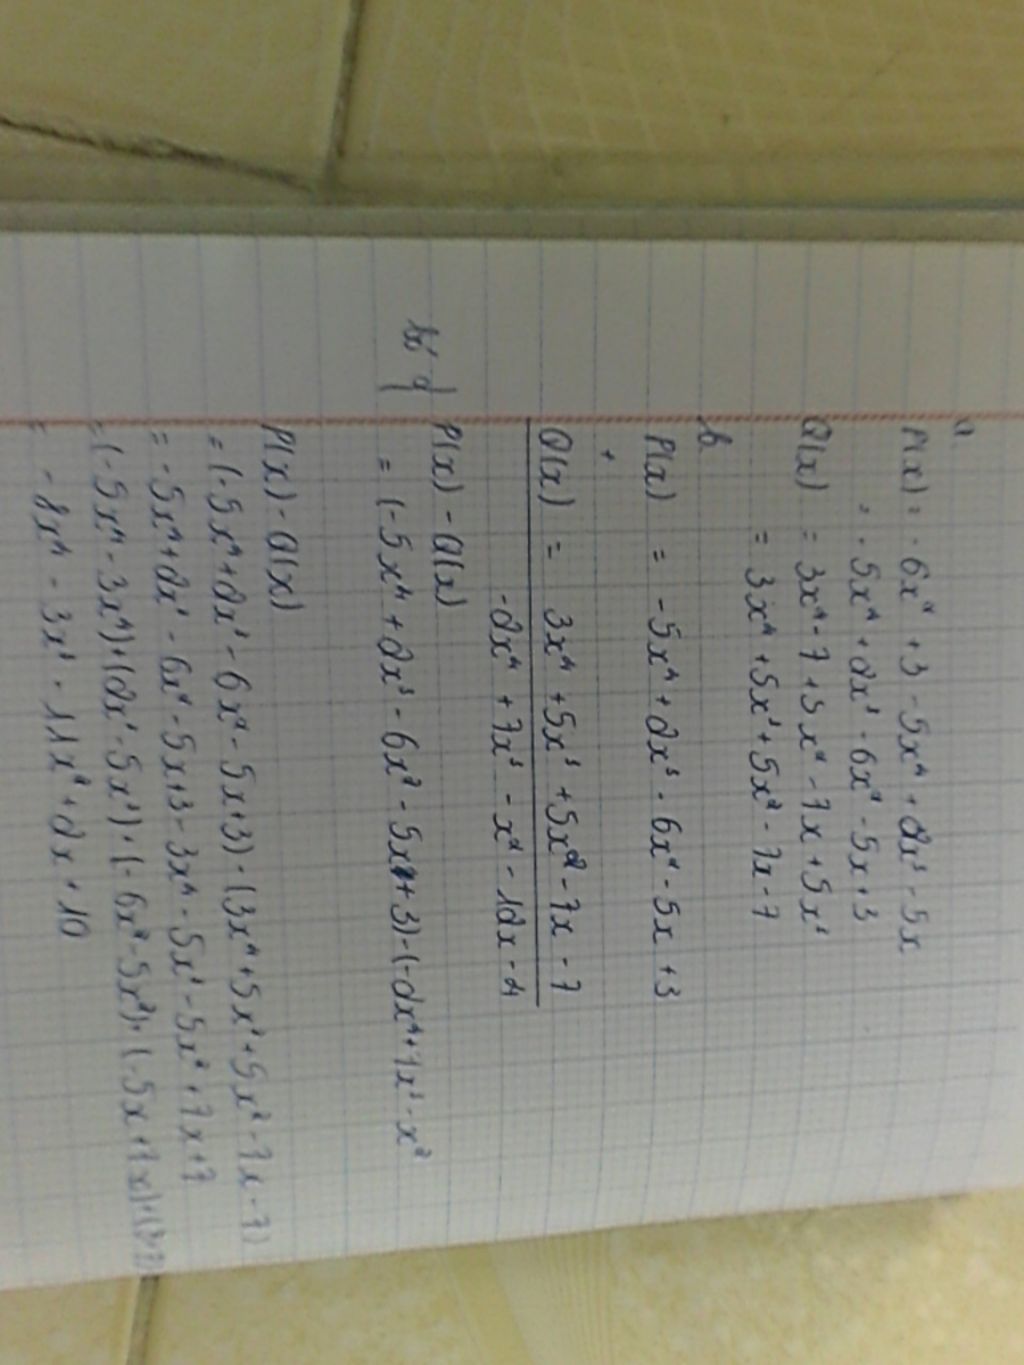 a
P(x) = -6x² + 3 - 5x⁴ + 2x³ - 5x
= -5x⁴ + 2x³ - 6x² - 5x + 3
Q(x) = 3x⁴ - 7 + 5x² - 7x + 5x³
= 3x⁴ + 5x³ + 5x² - 7x - 7
b
P(x) = -5x⁴ + 2x³ - 6x² - 5x + 3
+
Q(x) = 3x⁴ + 5x³ + 5x² - 7x - 7
-2x⁴ + 7x³ - x² - 12x - 4
P(x) - Q(x)
= (-5x⁴ + 2x³ - 6x² - 5x + 3) - (-2x⁴ + 7x³ - x²
P(x) - Q(x)
= (-5x⁴ + 2x³ - 6x² - 5x + 3) - (3x⁴ + 5x³ + 5x² - 7x - 7)
= -5x⁴ + 2x³ - 6x² - 5x + 3 - 3x⁴ - 5x³ - 5x² + 7x + 7
= (-5x⁴ - 3x⁴) + (2x³ - 5x³) + (-6x² - 5x²) + (-5x + 7x) + (3+7)
= -8x⁴ - 3x³ - 11x² + 2x + 10